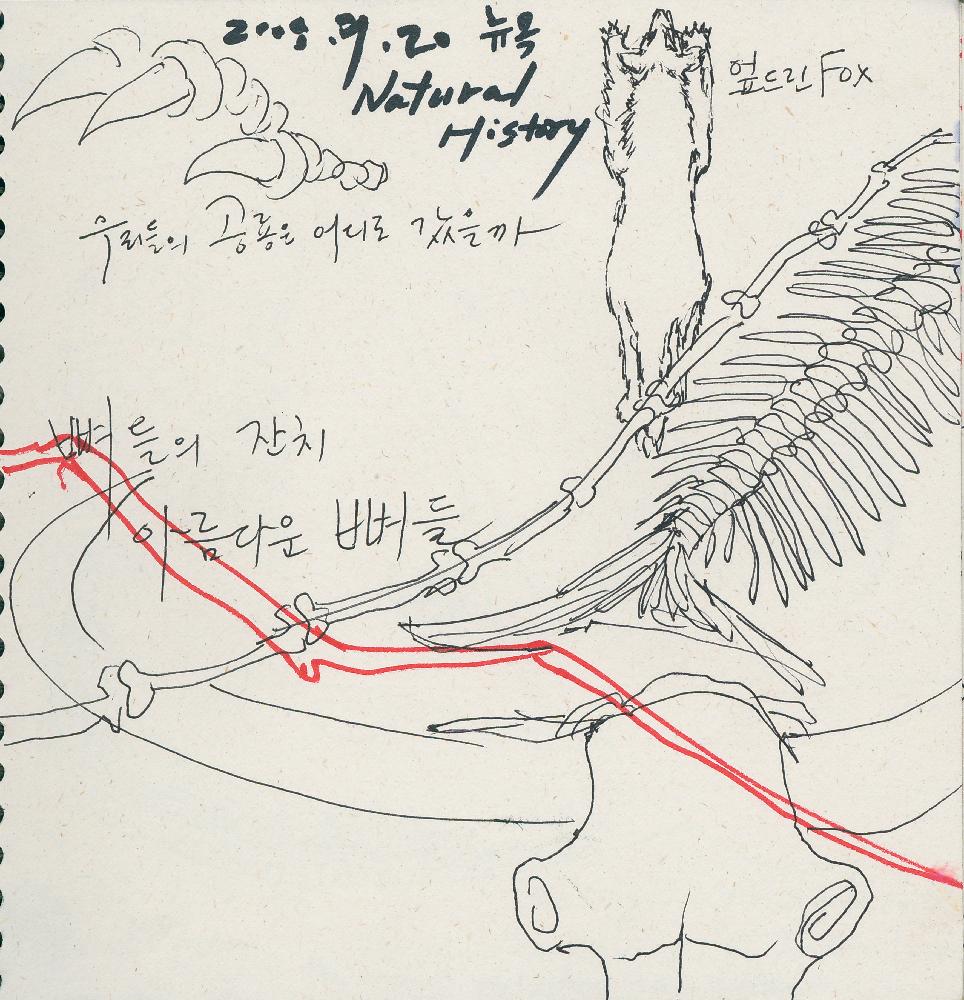 2008.9.20 뉴욕
Natural
History
엎드린 Fox
우리들의 공룡은 어디로 갔을까
뼈들의 잔치
아름다운 뼈들